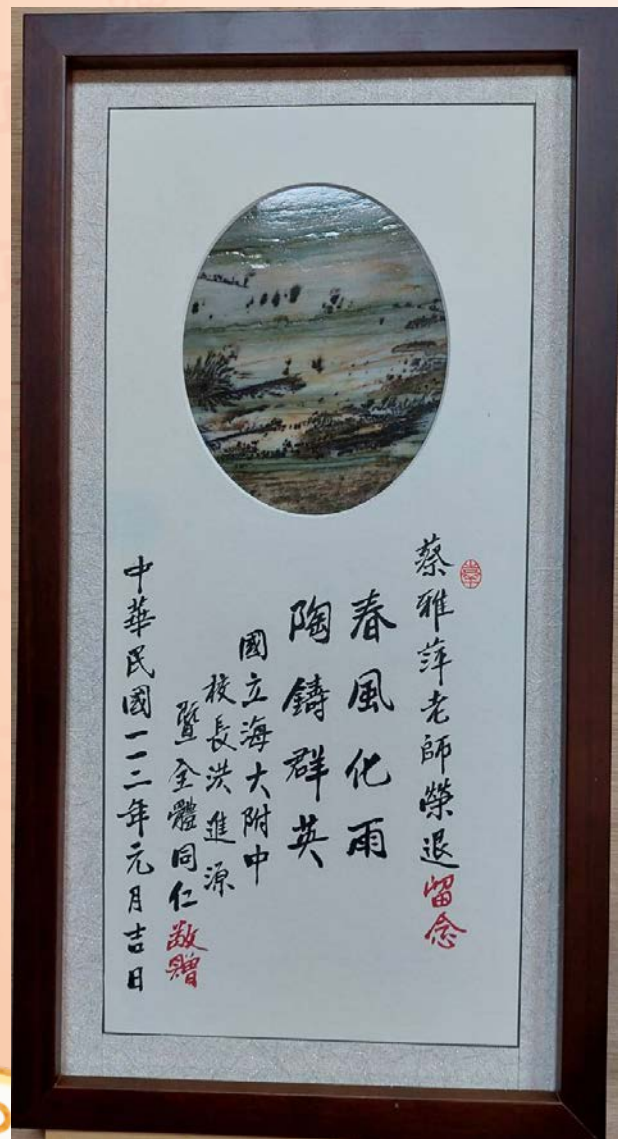 蔡雅萍老師榮退留念
春風化雨
陶鑄群英
國立海大附中
校長洪進源
暨全體同仁敬贈
中華民國一一二年元月吉日